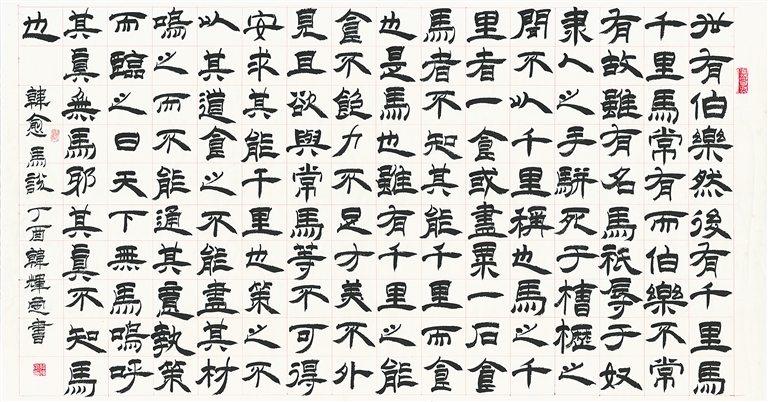 世有伯樂然後有千里馬
千里馬常有而伯樂不常
有故雖有名馬祇辱于奴
隶人之手駢死于槽櫪之
間不以千里稱也馬之千
里者一食或盡粟一石食
馬者不知其能千里而食
也是馬也雖有千里之能
食不飽力不足才美不外
見且欲與常馬等不可得
安求其能千里也策之不
以其道食之不能盡其材
鳴之而不能通其意執策
而臨之曰天下無馬嗚呼
其真無馬邪其真不知馬
也
韓愈馬說丁酉韓輝書